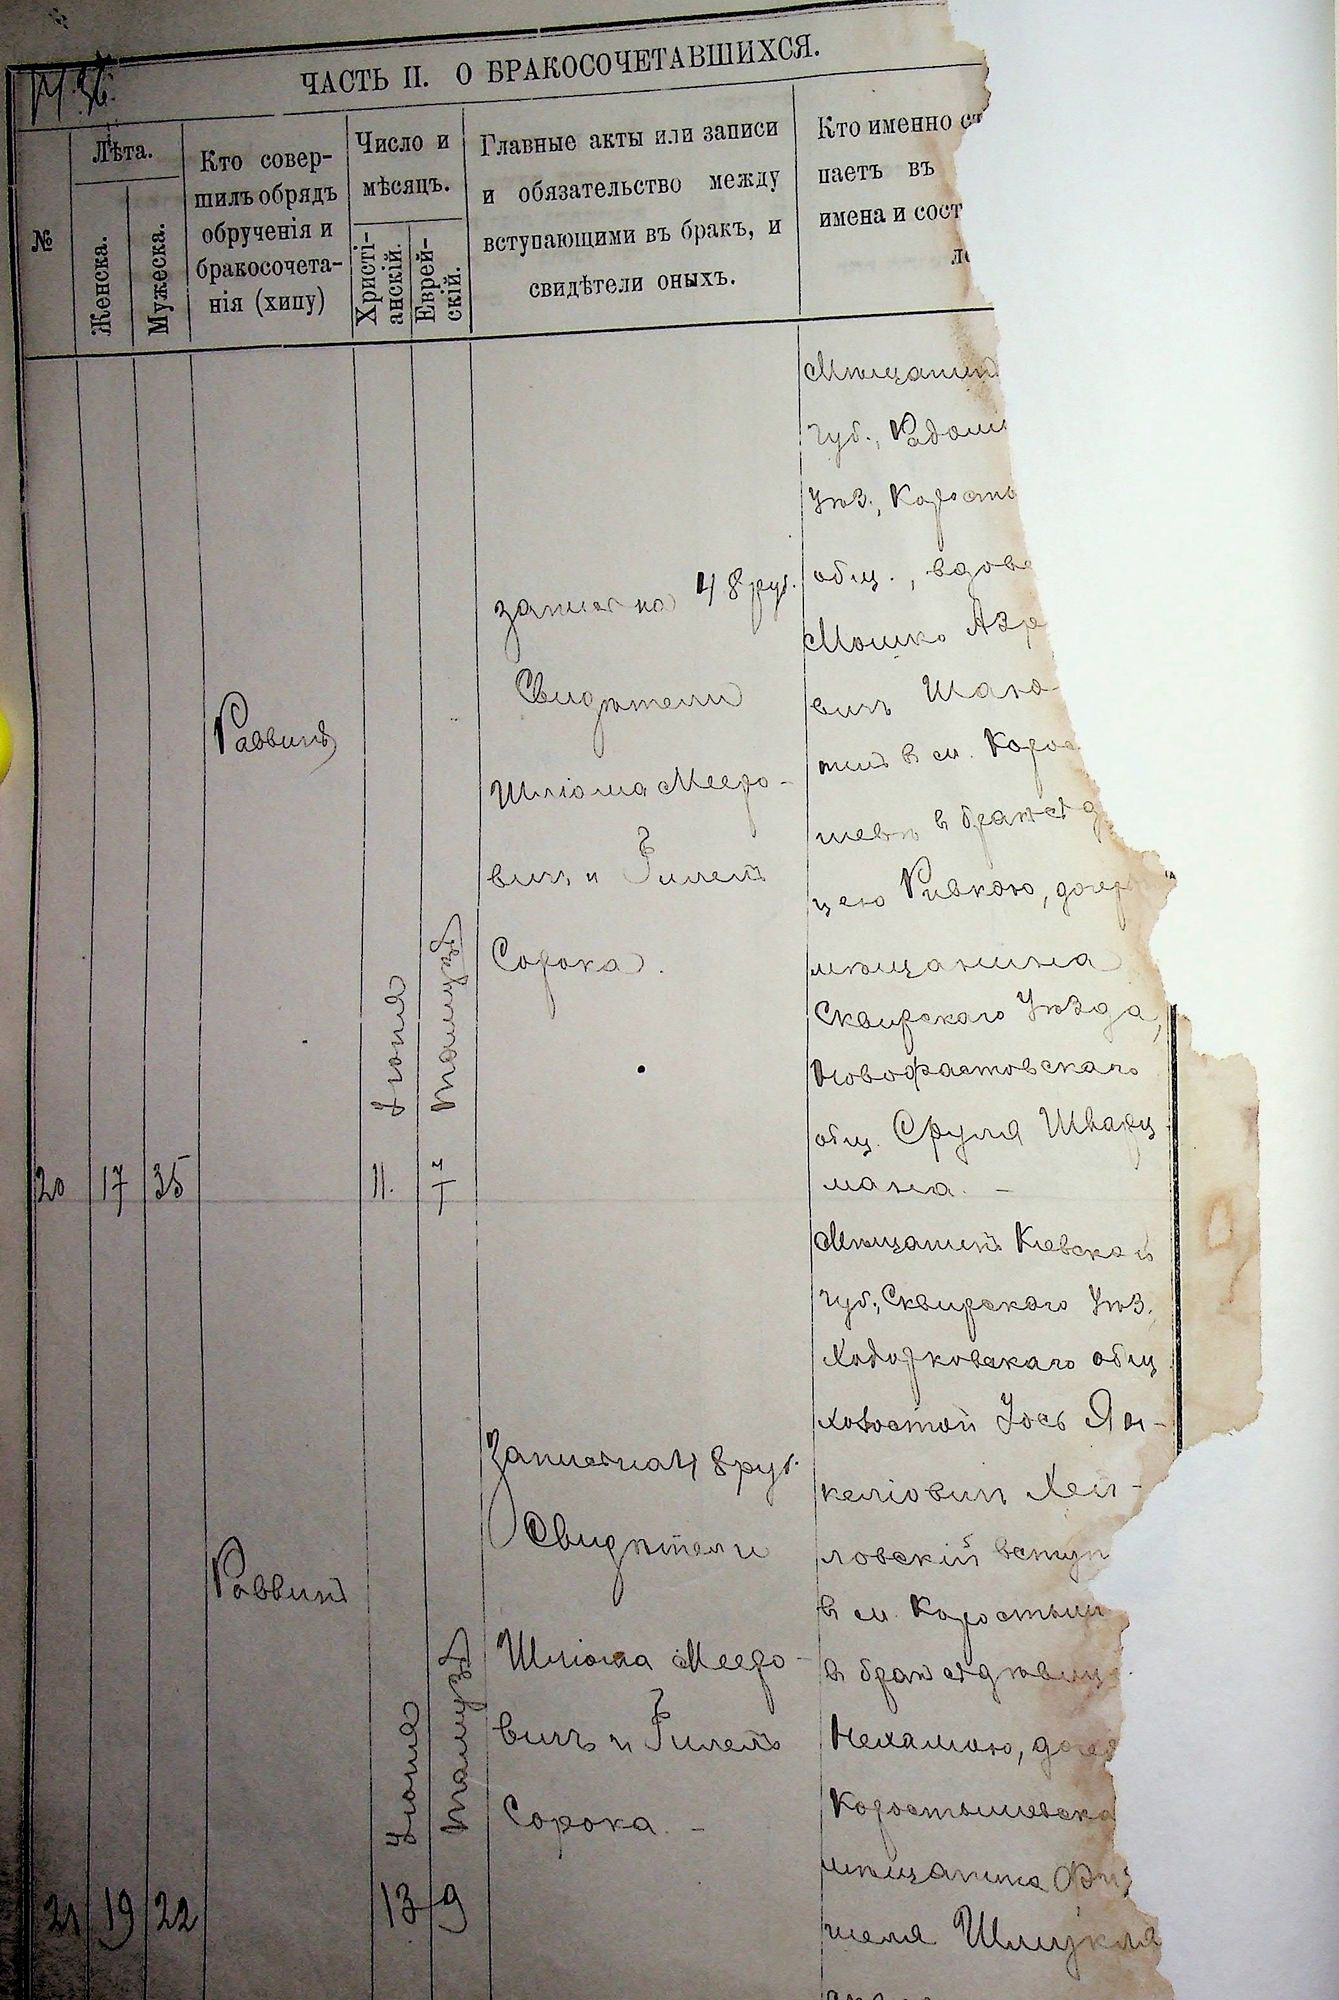 ЧАСТЬ II. О БРАКОСОЧЕТАВШИХСЯ.
№
Лѣта.
Женска.
Мужеска.
Кто совер-
шилъ обрядъ
обрученія и
бракосочета-
нія (хипу)
Число и
мѣсяцъ.
Христі-
анскій.
Еврей-
скій.
Главные акты или записи
и обязательство между
вступающими въ бракъ, и
свидѣтели оныхъ.
Кто именно
паетъ въ
имена и сост
20
17
35
Раввинъ
11.
Іюня
Тамуза
запись на 48 руб.
Свидѣтели
Шліома Мееро-
вичъ и
Сорока.
Мѣщанинъ
губ., Радом
уѣз., Корост
общ., вдов
Мошко Аэр
вичъ
в м. Корос
шевѣ в бракъ с
цею Ривкою, дочер
мѣщанина
Сквирскаго уѣзда,
Новофастовскаго
общ. Сруля Шварц-
мана. —
21
19
22
Раввинъ
13
Іюня
9
Тамуза
Запись на 48 руб.
Свидѣтели
Шліома Мееро-
вичъ и
Сорока. —
Мѣщанинъ Кіевской
губ., Сквирскаго уѣз.,
Ходорковскаго общ.
холостой Іось Ян-
келіовичъ Хей-
ловскій вступ
в м. Коростыш
в бракъ с дѣвиц
Нехамою, дочер
Коростышевска
мѣщанина
шеля